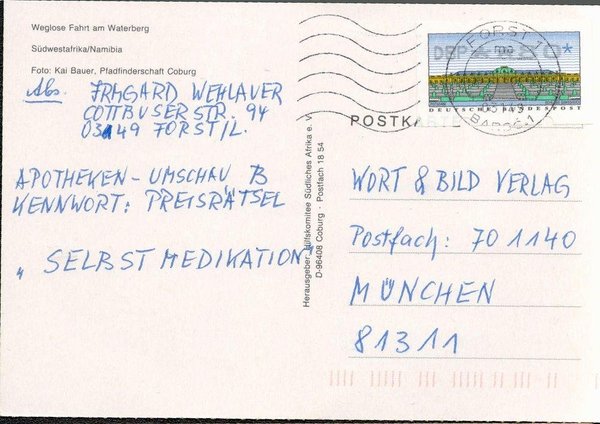 Weglose Fahrt am Waterberg
Südwestafrika/Namibia
Foto: Kai Bauer, Pfadfinderschaft Coburg
Abs. IRMGARD WEHLAUER
COTTBUSER STR. 94
03149 FORST/L.
APOTHEKEN-UMSCHAU B
KENNWORT: PREISRÄTSEL
"SELBST MEDIKATION"
Herausgeber: Hilfskomitee Südliches Afrika e. V.
D-96408 Coburg · Postfach 18 54
FORST
DEUTSCHE BUNDESPOST
POSTKARTE
WORT & BILD VERLAG
Postfach: 701140
MÜNCHEN
81311